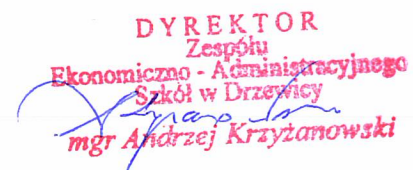 DYREKTOR
Zespołu
Ekonomiczno - Administracyjnego
Szkół w Drzewicy
mgr Andrzej Krzyżanowski